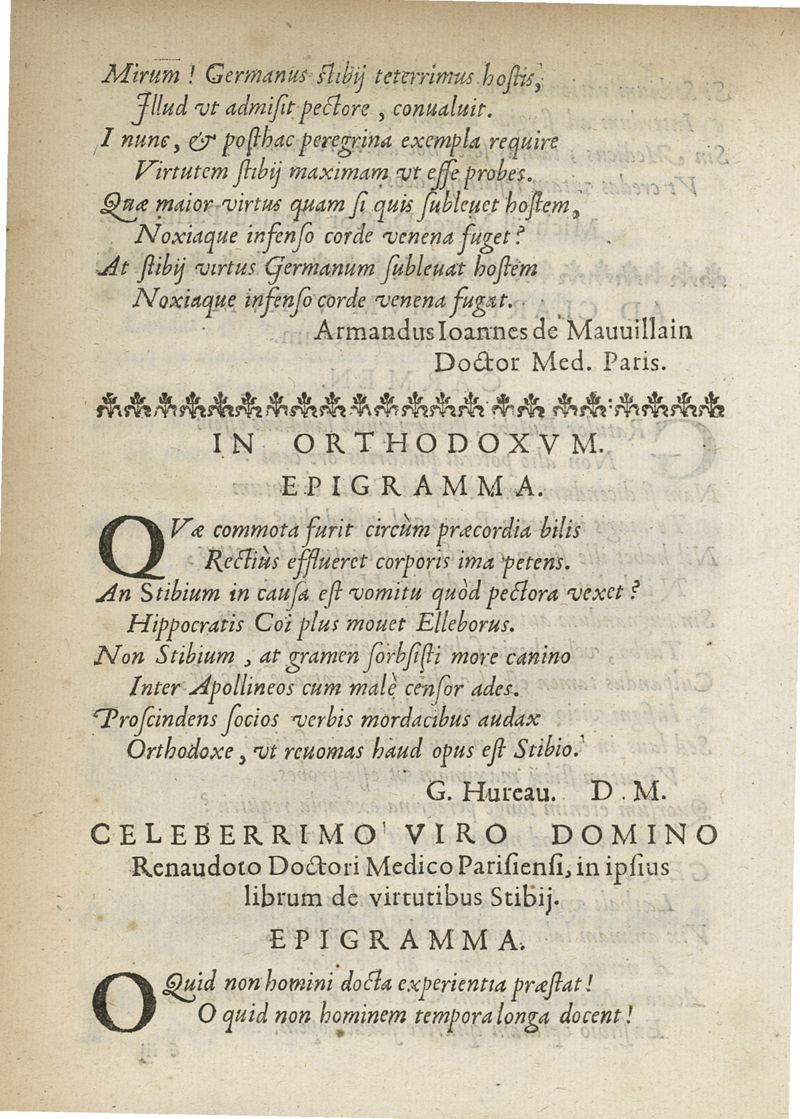 Mirum ! Germanus ſtibij teterrimus hoſtis,
Illud vt admiſit pectore , conualuit.
I nunc, & poſthac peregrina exempla require
Virtutem ſtibij maximam vt eſſe probes.
Quæ maior virtus quam ſi quis ſubleuet hoſtem,
Noxiaque infenſo corde venena fuget ?
At ſtibij virtus Germanum ſubleuat hoſtem
Noxiaque infenſo corde venena fugat.
Armandus Ioannes de Mauuillain
Doctor Med. Paris.
IN ORTHODOXVM.
EPIGRAMMA.
QVæ commota furit circùm præcordia bilis
Rectiùs efflueret corporis ima petens.
An Stibium in cauſa eſt vomitu quòd pectora vexet ?
Hippocratis Coi plus mouet Elleborus.
Non Stibium , at gramen ſorbſiſti more canino
Inter Apollineos cum malè cenſor ades.
Proſcindens ſocios verbis mordacibus audax
Orthodoxe, vt reuomas haud opus eſt Stibio.
G. Hureau. D. M.
CELEBERRIMO VIRO DOMINO
Renaudoto Doctori Medico Pariſienſi, in ipſius
librum de virtutibus Stibij.
EPIGRAMMA.
O Quid non homini docta experientia præſtat !
O quid non hominem tempora longa docent !